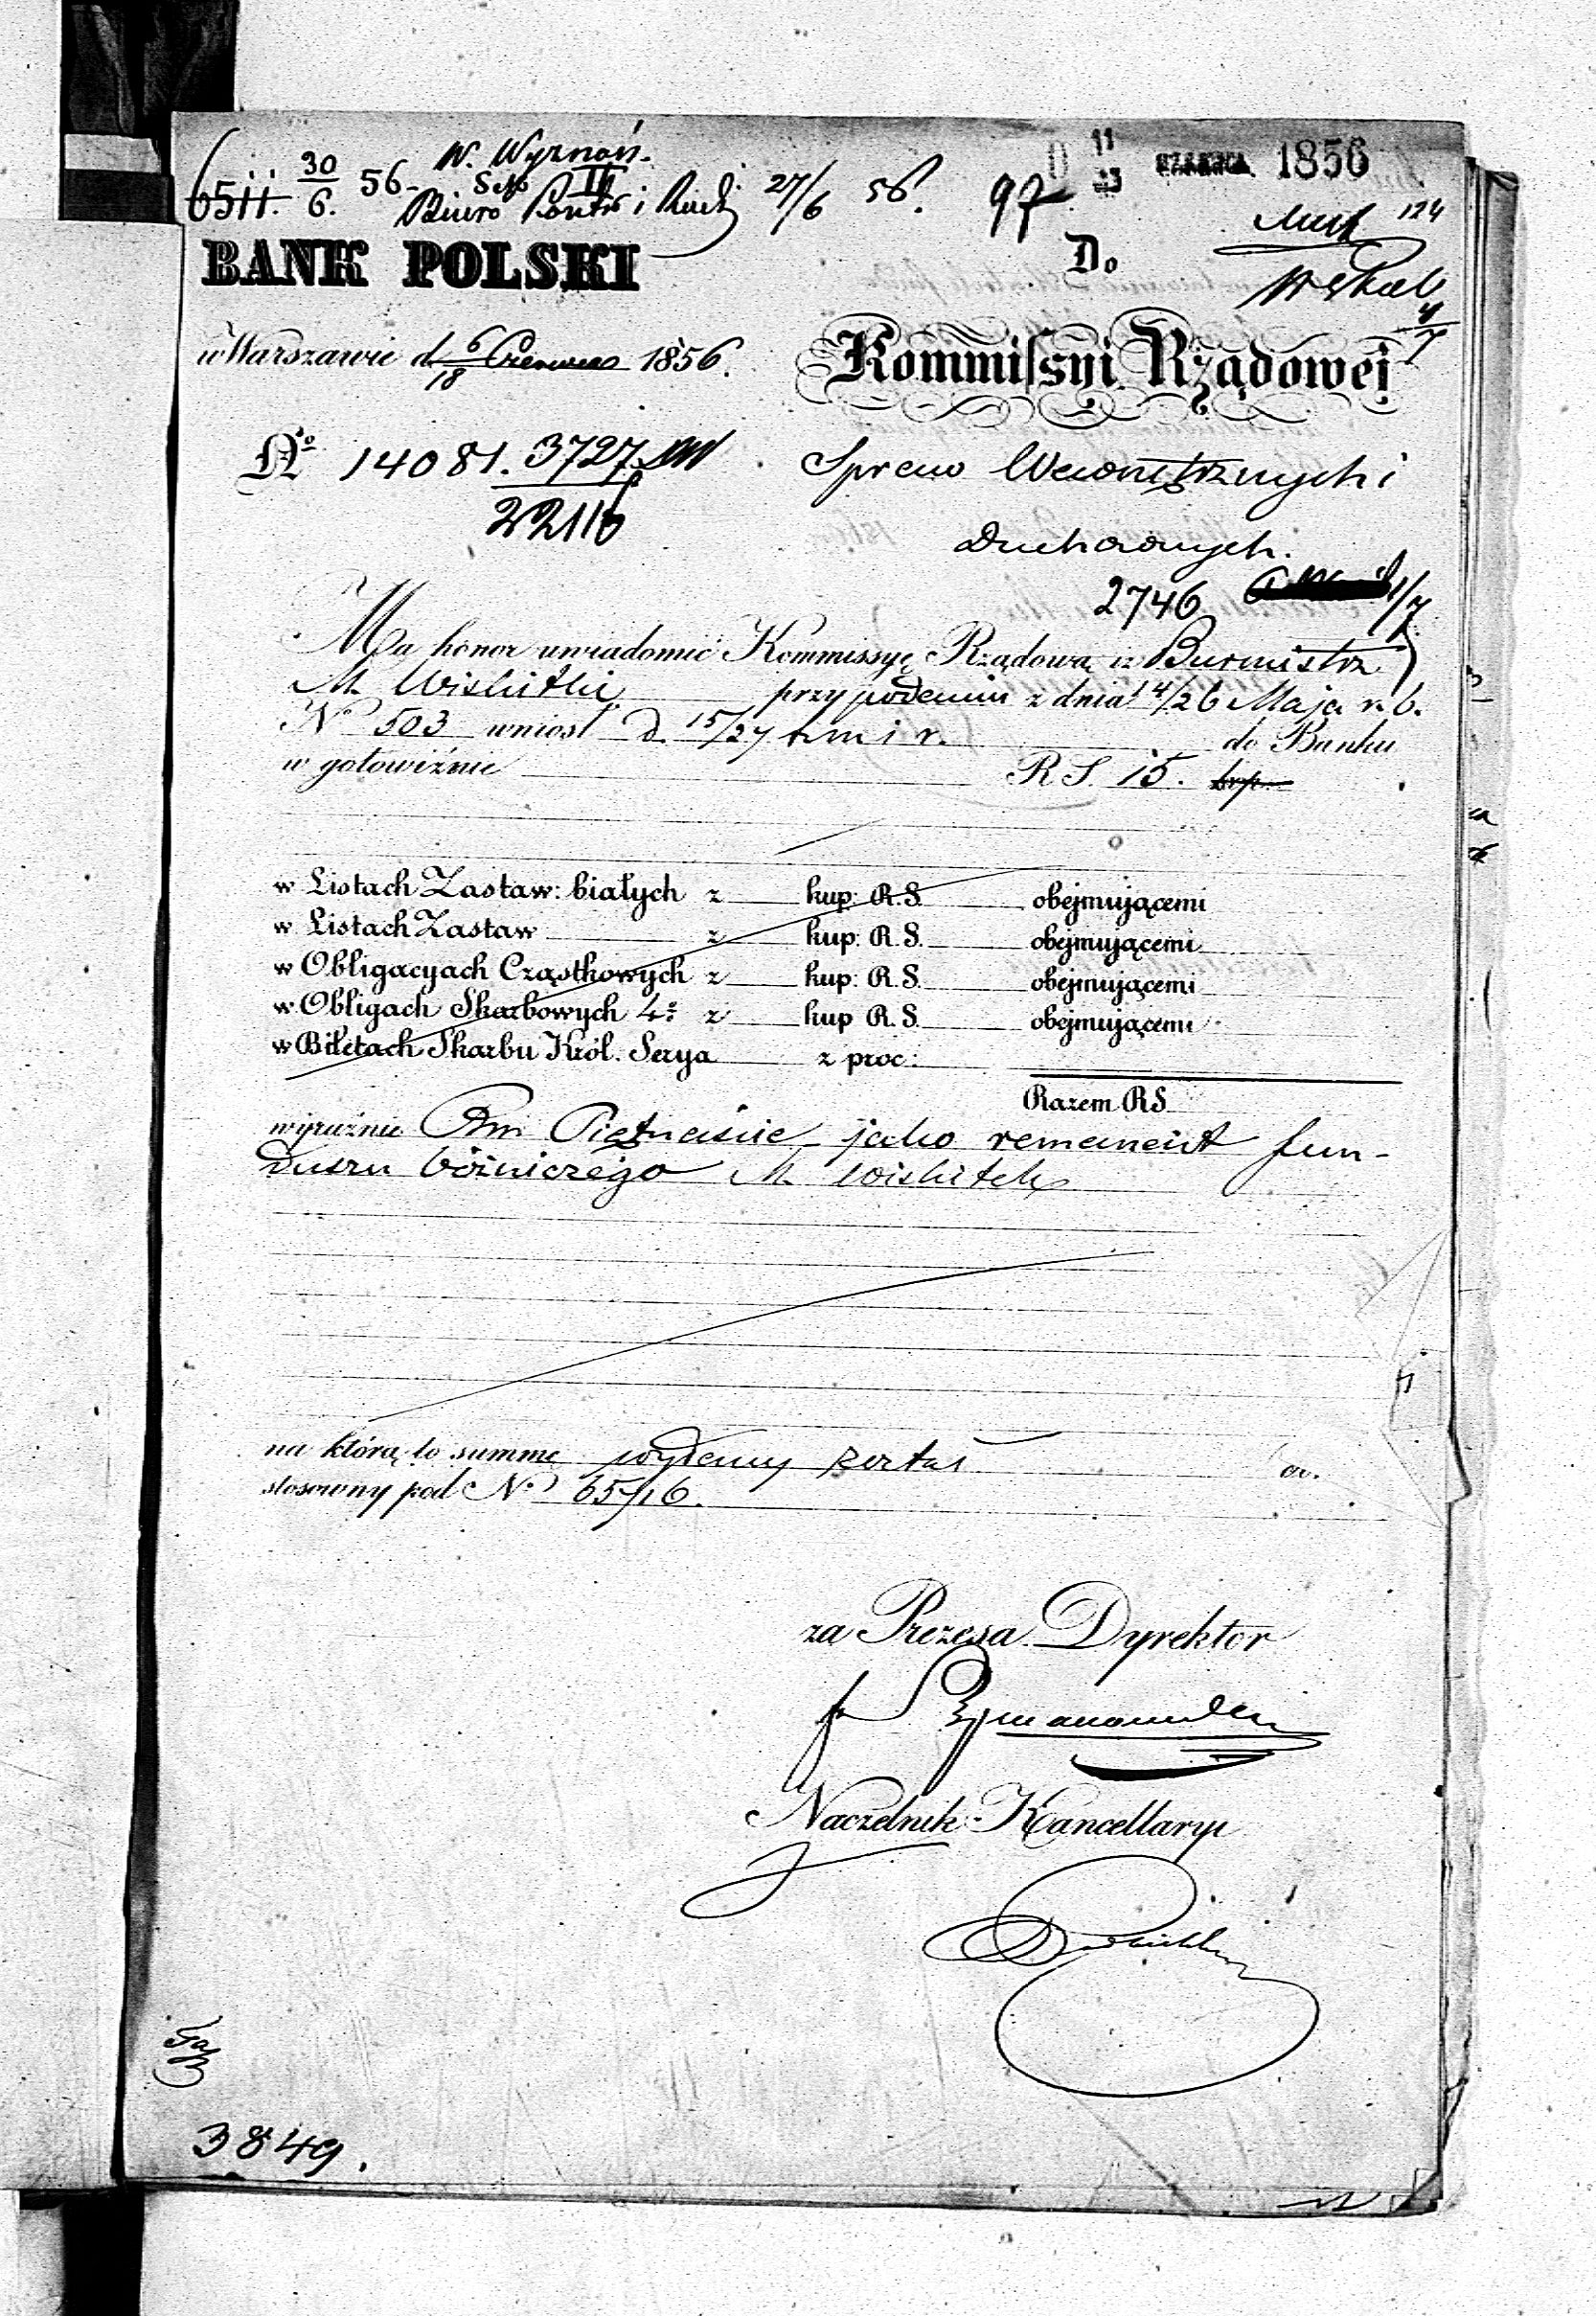 W. Wyznań.
6511. 30/6. 56. Sekc II
Biuro Kontr i Rach 27/6 56. 97
11/23 CZERWCA 1856
124
BANK POLSKI
Do
w Warszawie d 6/18 Czerwca 1856.
4/7
Kommissyi Rządowej
No 14081. 3727
22116
Spraw Wewnętrznych i
Duchownych.
2746 1/7
Ma honor uwiadomić Kommissyę Rządową iż Burmistrz
M. Wiskitki przy podaniu z dnia 14/26 Maja r. b.
No 503 wniosł d. 15/27 t. m i r. do Banku
w gotowiźnie RS. 15. kop.
w Listach Zastaw: białych z kup: R.S. obejmującemi
w Listach Zastaw z kup: R.S. obejmującemi
w Obligacyach Cząstkowych z kup: R.S. obejmującemi
w Obligach Skarbowych 4% z kup R.S. obejmującemi
w Biletach Skarbu Król. Serya z proc:
Razem RS
wyraźnie Rsr Piętnaście jako remanent fun-
duszu bóźniczego M. Wiskitek
na którą to summę wydany został
stosowny pod No 65716.
za Prezesa Dyrektor
Naczelnik Kancellaryi
3849.